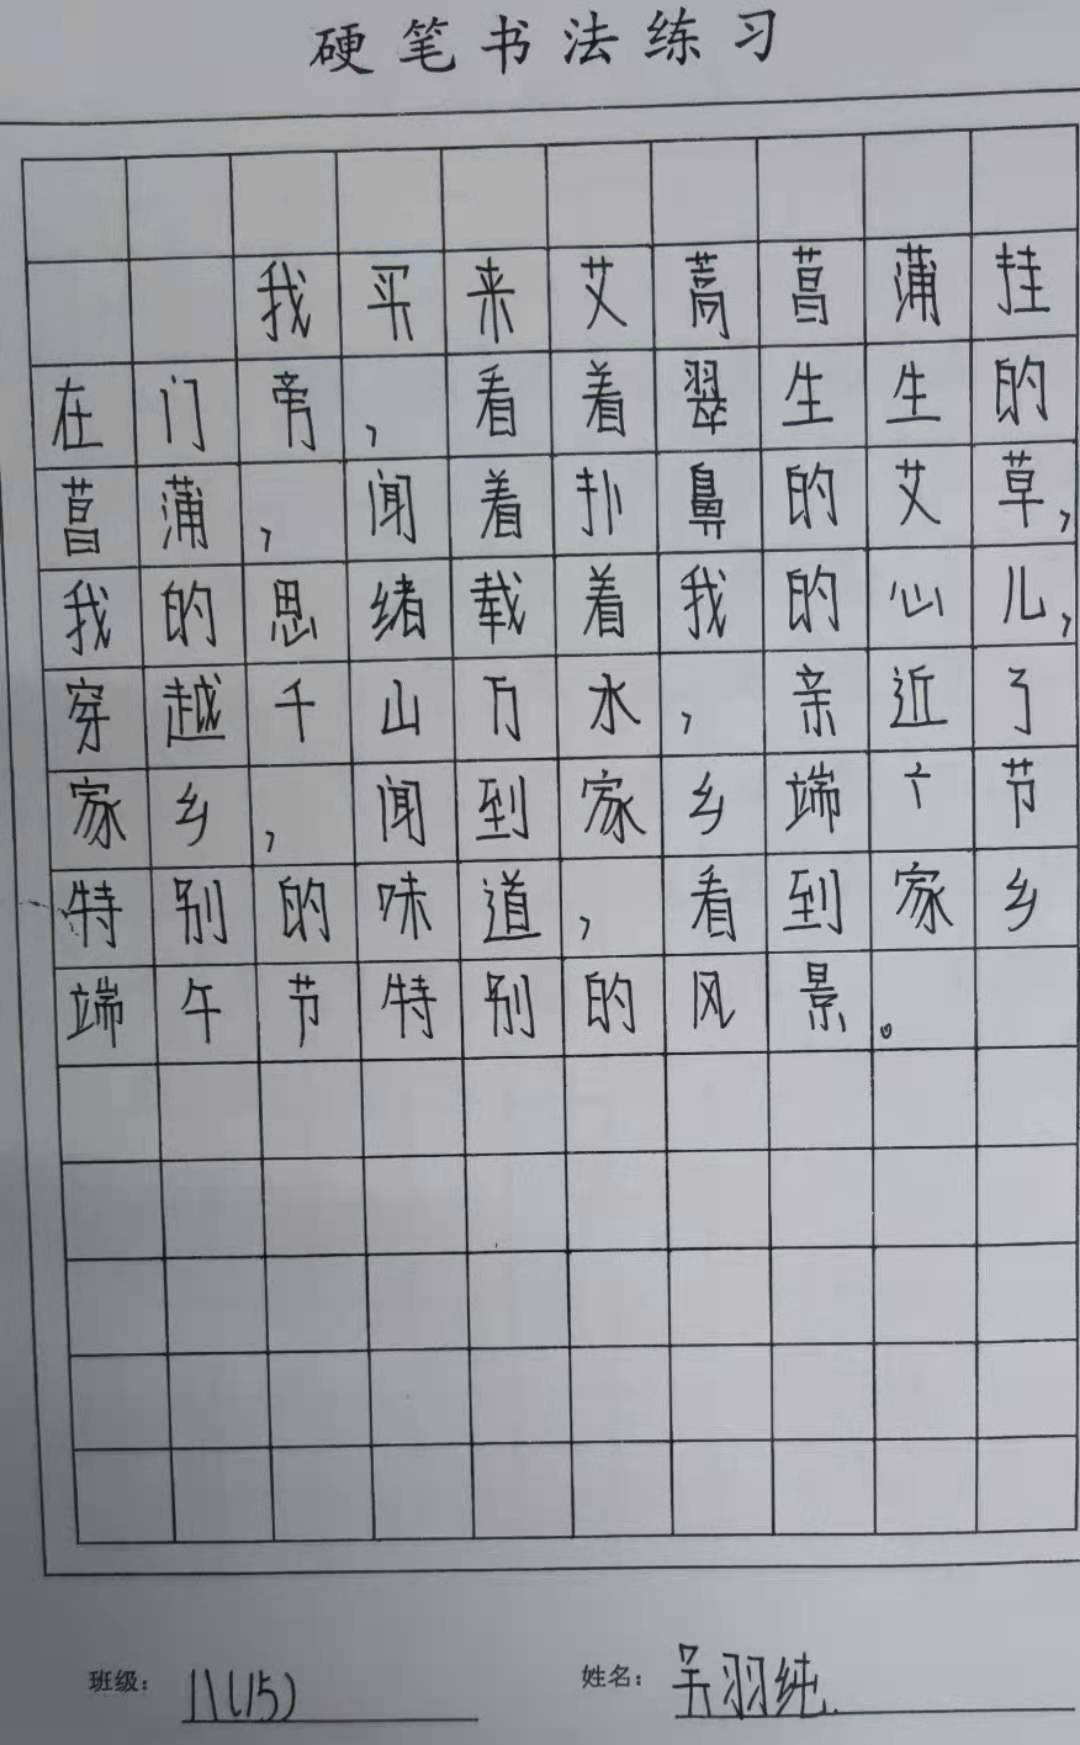 硬笔书法练习
我买来艾蒿菖蒲挂
在门旁，看着翠生生的
菖蒲，闻着扑鼻的艾草，
我的思绪载着我的心儿，
穿越千山万水，亲近了
家乡，闻到家乡端午节
特别的味道，看到家乡
端午节特别的风景。
班级：八(15) 姓名：吴羽纯